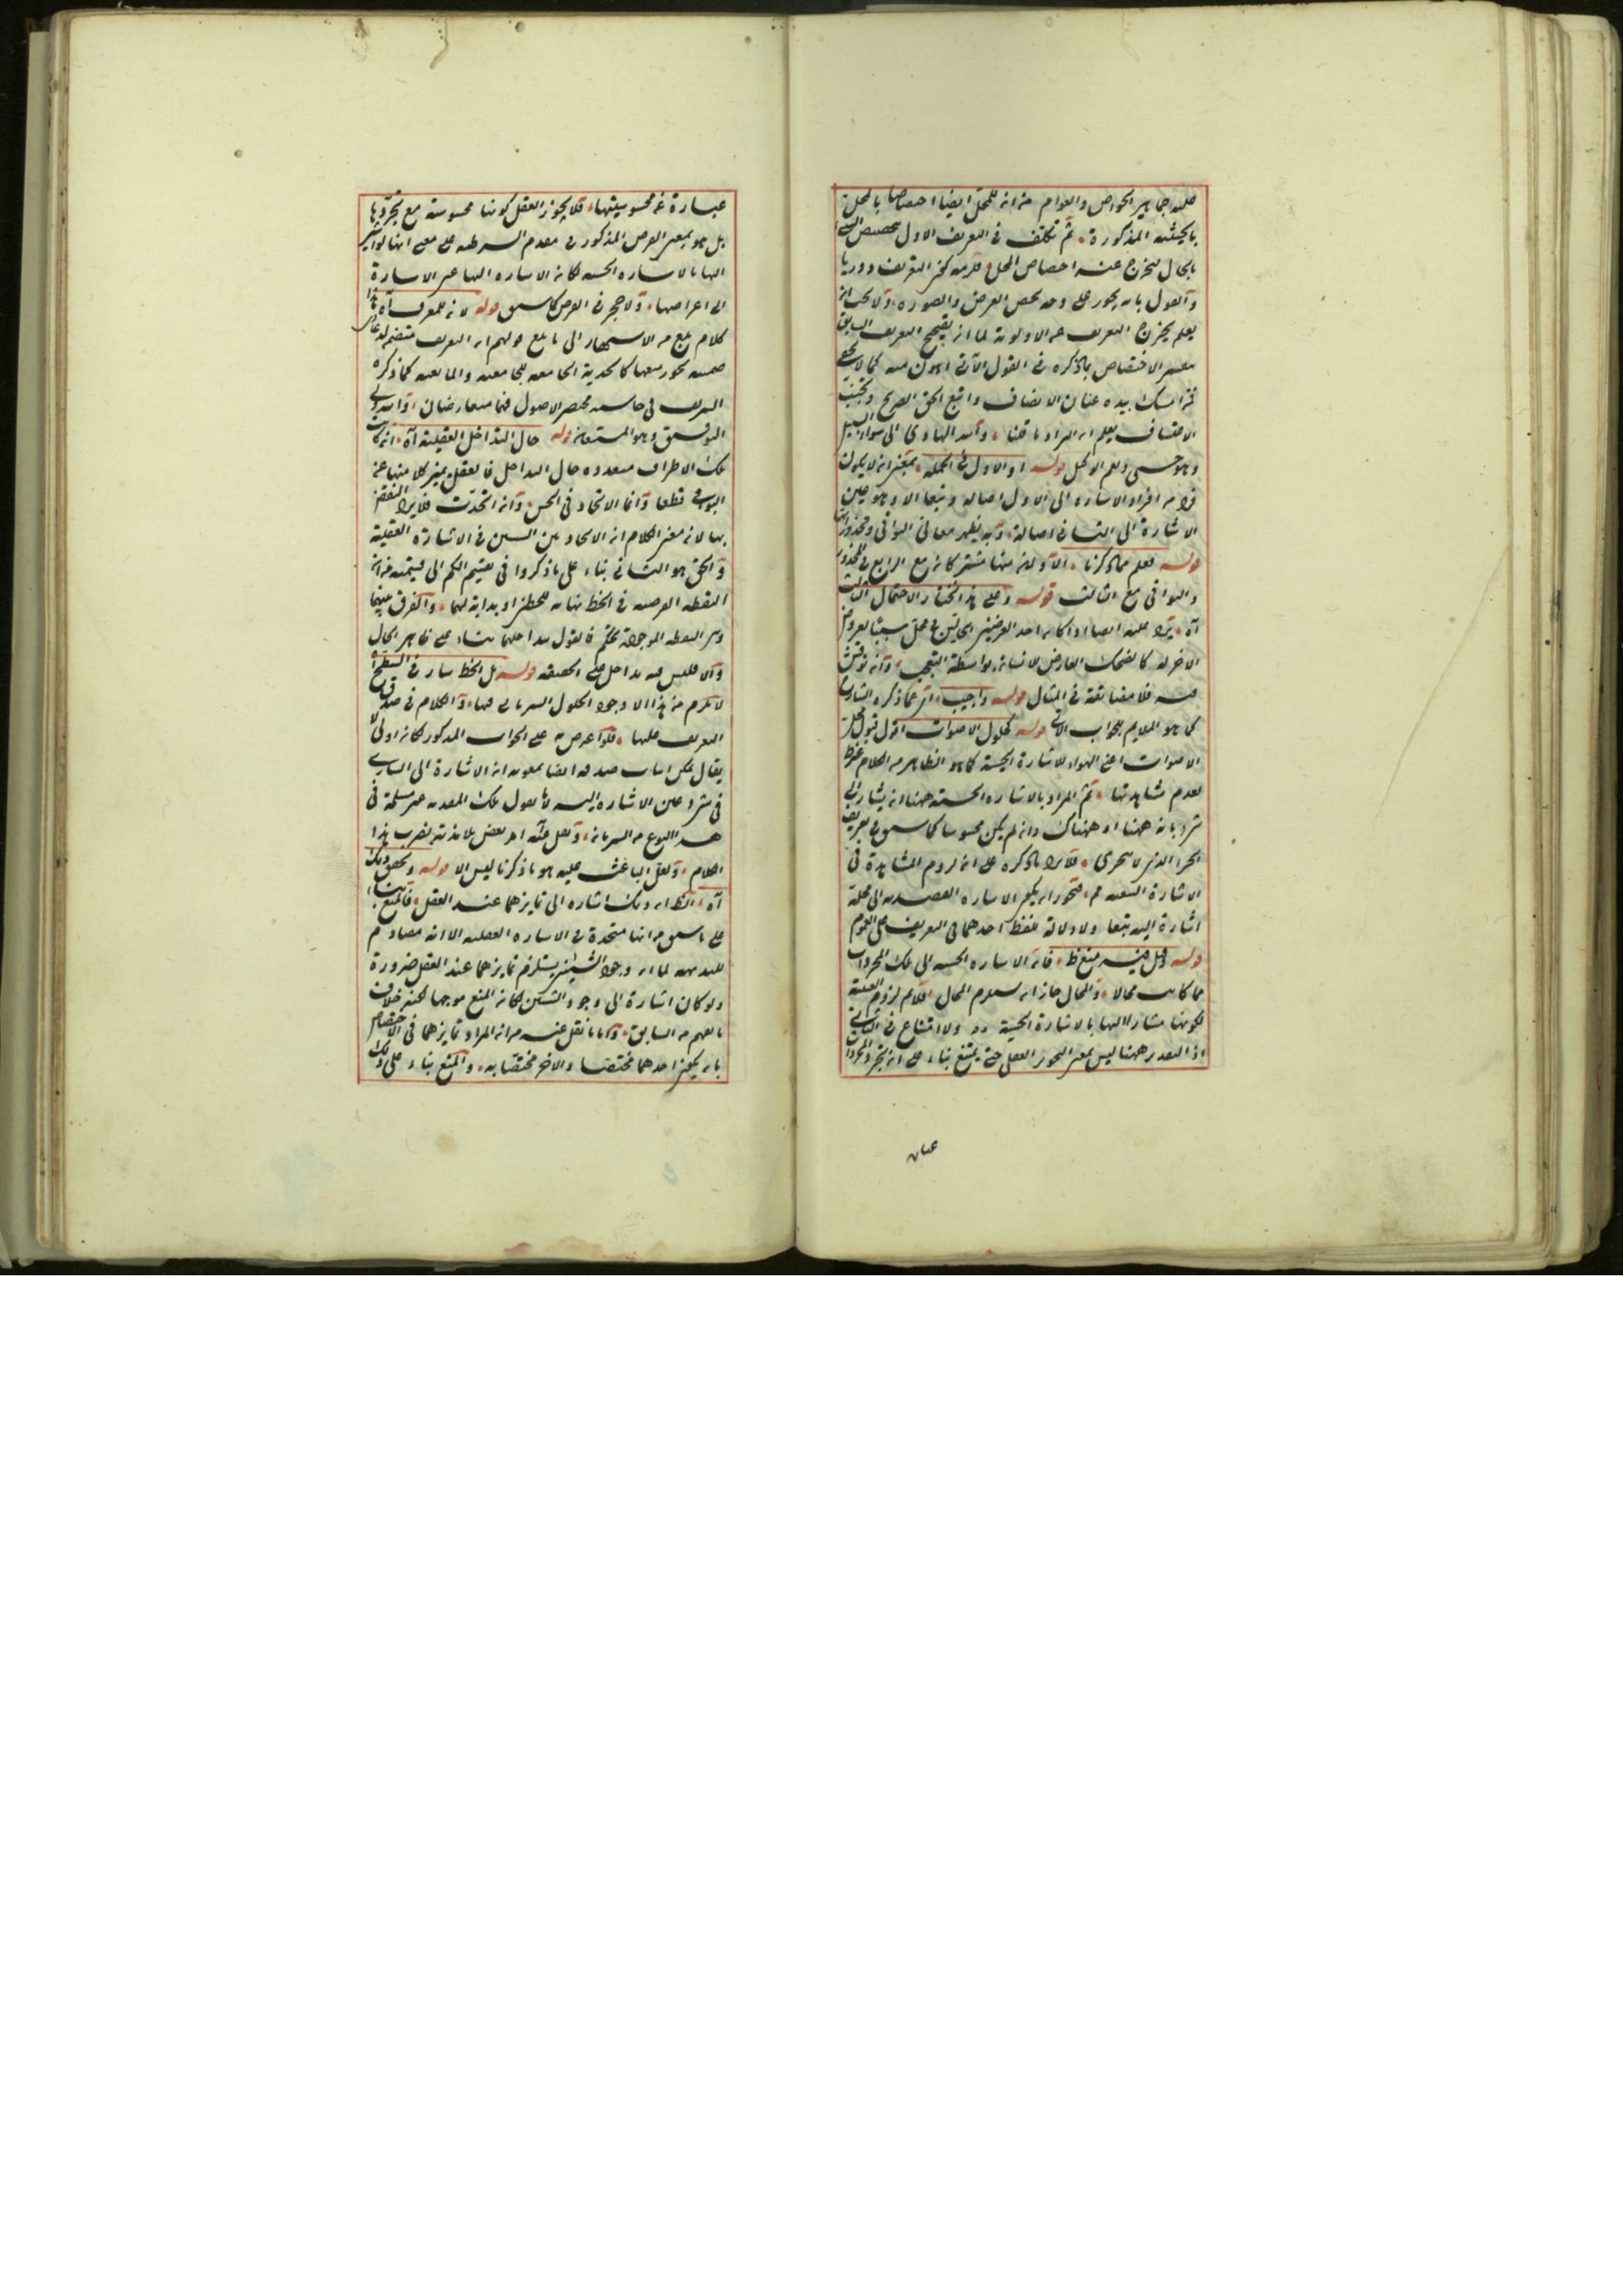 عليه جماهير الخواص والعوام من انه للمحل ايضا اختصاصا بالمحل
بالحيثية المذكورة ثم تكلف في التعريف الاول
بالحال ليخرج عنه اختصاص المحل
والقول بانه يجوز على وجه يخص العرض والصورة
يعلم بخروج التعريف عن الاولوية لما ان تصحيح التعريف السابق
الاختصاص بما ذكره في القول الآتي اهون منه كما لا يخفى
بيده عنان الانصاف واتبع الحق الصريح وتجنب
الاعتساف يعلم ان المراد ما قلنا والله الهادي الى سواء السبيل
وهو حسبي ونعم الوكيل قوله او الاول في الجملة بمعنى انه لا يكون
فرد من افراد الاشارة الى الاول اصالة وتبعا الا وهو عين
الاشارة الى الثاني اصالة وبه يظهر معاني البواقي
قوله فعلم مما ذكرنا الاولان منها مشتركان مع الرابع في المحذور
والبواقي مع الثالث قوله وعلى هذا اختار الاحتمال الثالث
آه يرد عليه ايضا اذا كان احد العرضين الحالين في محل سببا لعروض
الاخر له كالضحك العارض للانسان بواسطة التعجب وان نوقش
فيه فلا مضايقة في المثال قوله واجيب اي عما ذكره الشارح
كما هو الملايم للجواب الآتي قوله كحلول الاصوات اقول
الاصوات اعني الهواء للاشارة الحسية كما هو الظاهر من الكلام
لعدم مشاهدتها ثم المراد بالاشارة الحسية ههنا ان يشار الى
شيء بانه ههنا او هناك وان لم يكن محسوسا كما سبق في تعريف
الجزء الذي لا يتجزى فلا يرد ما ذكره على ان لزوم المشاهدة في
الاشارة التبعية مم فيجوز ان يكون الاشارة القصدية الى محله
اشارة اليه تبعا ولا دلالة للفظ احدهما في التعريف على العموم
قوله وقيل فيه منع ظ فان الاشارة الحسية الى تلك المجردات
مما كانت محالا والمحال جاز ان يستلزم المحال فلانم لزوم العينية
لكونها مشارا اليها بالاشارة الحسية ولا امتناع في الثاني
اذ التقدير ههنا ليس بمعنى التجويز العقلي حتى يمتنع بناء على ان تجرد المجردات
عبارة
عبارة عن محسوسيتها فلا يجوز العقل كونها محسوسة مع تجردها
بل هو بمعنى الفرض المذكور في مقدم الشرطية على معنى انها لو اشير
اليها بالاشارة الحسية لكان الاشارة اليها عين الاشارة
الى اعراضها ولا حجر في الفرض كما سبق قوله لانه للمعرف آه هذا
كلام بلغ من الاشتهار الى ما بلغ قولهم ان التعريف متضمن
ضمنية يجوز منعها كالحدية الجامعية والمانعية كما ذكره
الشريف في حاشية مختصر الاصول فهما متعارضان والله ولي
التوفيق وهو المستعان قوله حال التداخل العقلية آه ان كانت
تلك الاطراف متعددة حال التداخل فالعقل يميز كلا منها عن
البواقي قطعا وانما الاتحاد في الحس وان اتحدت فلا يرد النقض
بها لان معنى الكلام ان الاتحاد بين الشيئين في الاشارة العقلية
والحق هو الثاني بناء على ما ذكروا في تقسيم الكم الى قسميه من ان
النقطة الفرضية في الخط نهاية للخطين او بداية لهما والفرق بينها
وبين النقطة الموجودة تحكم فالقول بتداخلهما بناء على ظاهر الحال
والا فليس فيه تداخل على الحقيقة قوله بل الخط سار في السطح آه
لا يلزم من هذا الا وجود الحلول السرياني فيها والكلام في صدق
التعريف عليها فلو اعترض به على الجواب المذكور لكان اولى لا
يقال يمكن اثبات صدقه ايضا بمعونة ان الاشارة الى الساري
في شيء عين الاشارة اليه لانا نقول تلك المقدمة غير مسلمة في
هذا النوع من السريان ولعل
الكلام ولعل الباعث عليه هو ما ذكرنا ليس الا قوله وتحقق ذلك
آه الظ ان ذلك اشارة الى تمايزهما عند العقل فالمنع
على ما سبق من انها متحدة في الاشارة العقلية الا انه مصادم
للبديهة لما ان وجود الشيئين يستلزم تمايزهما عند العقل ضرورة
ولو كان اشارة الى وجود الشيئين لكان المنع موجها لكنه خلاف
ما يفهم من السابق واما ما نقل عنه من ان المراد تمايزهما في الاختصاص
بان يكون احدهما مختصا والاخر مختصا به والمنع بناء على ذلك